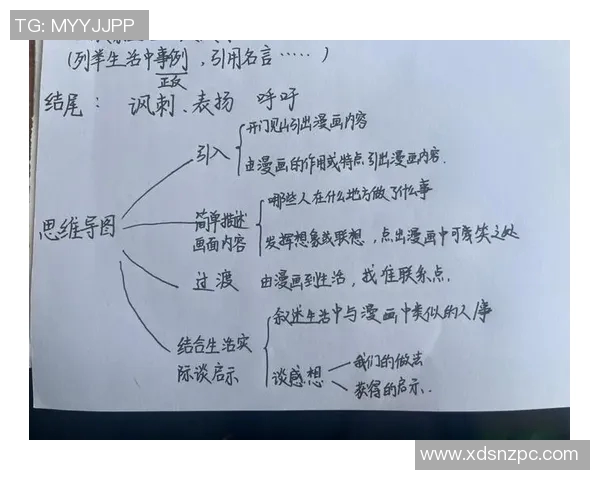 TG: MYYJJPP
(列举生活中事例，引用名言……)
正反
结尾： 讽刺、表扬 呼吁
思维导图
引入
开门见山引出漫画内容
由漫画的作用或特点引出漫画内容.
简单描述
画面内容
哪些人在什么地方做了什么事
发挥想象或联想，点出漫画中可笑之处
过渡 由漫画到生活，找准联系点.
结合生活实
际谈启示
叙述生活中与漫画中类似的人事
谈感想
我们的做法
获得的启示.
www.xdsnzpc.com